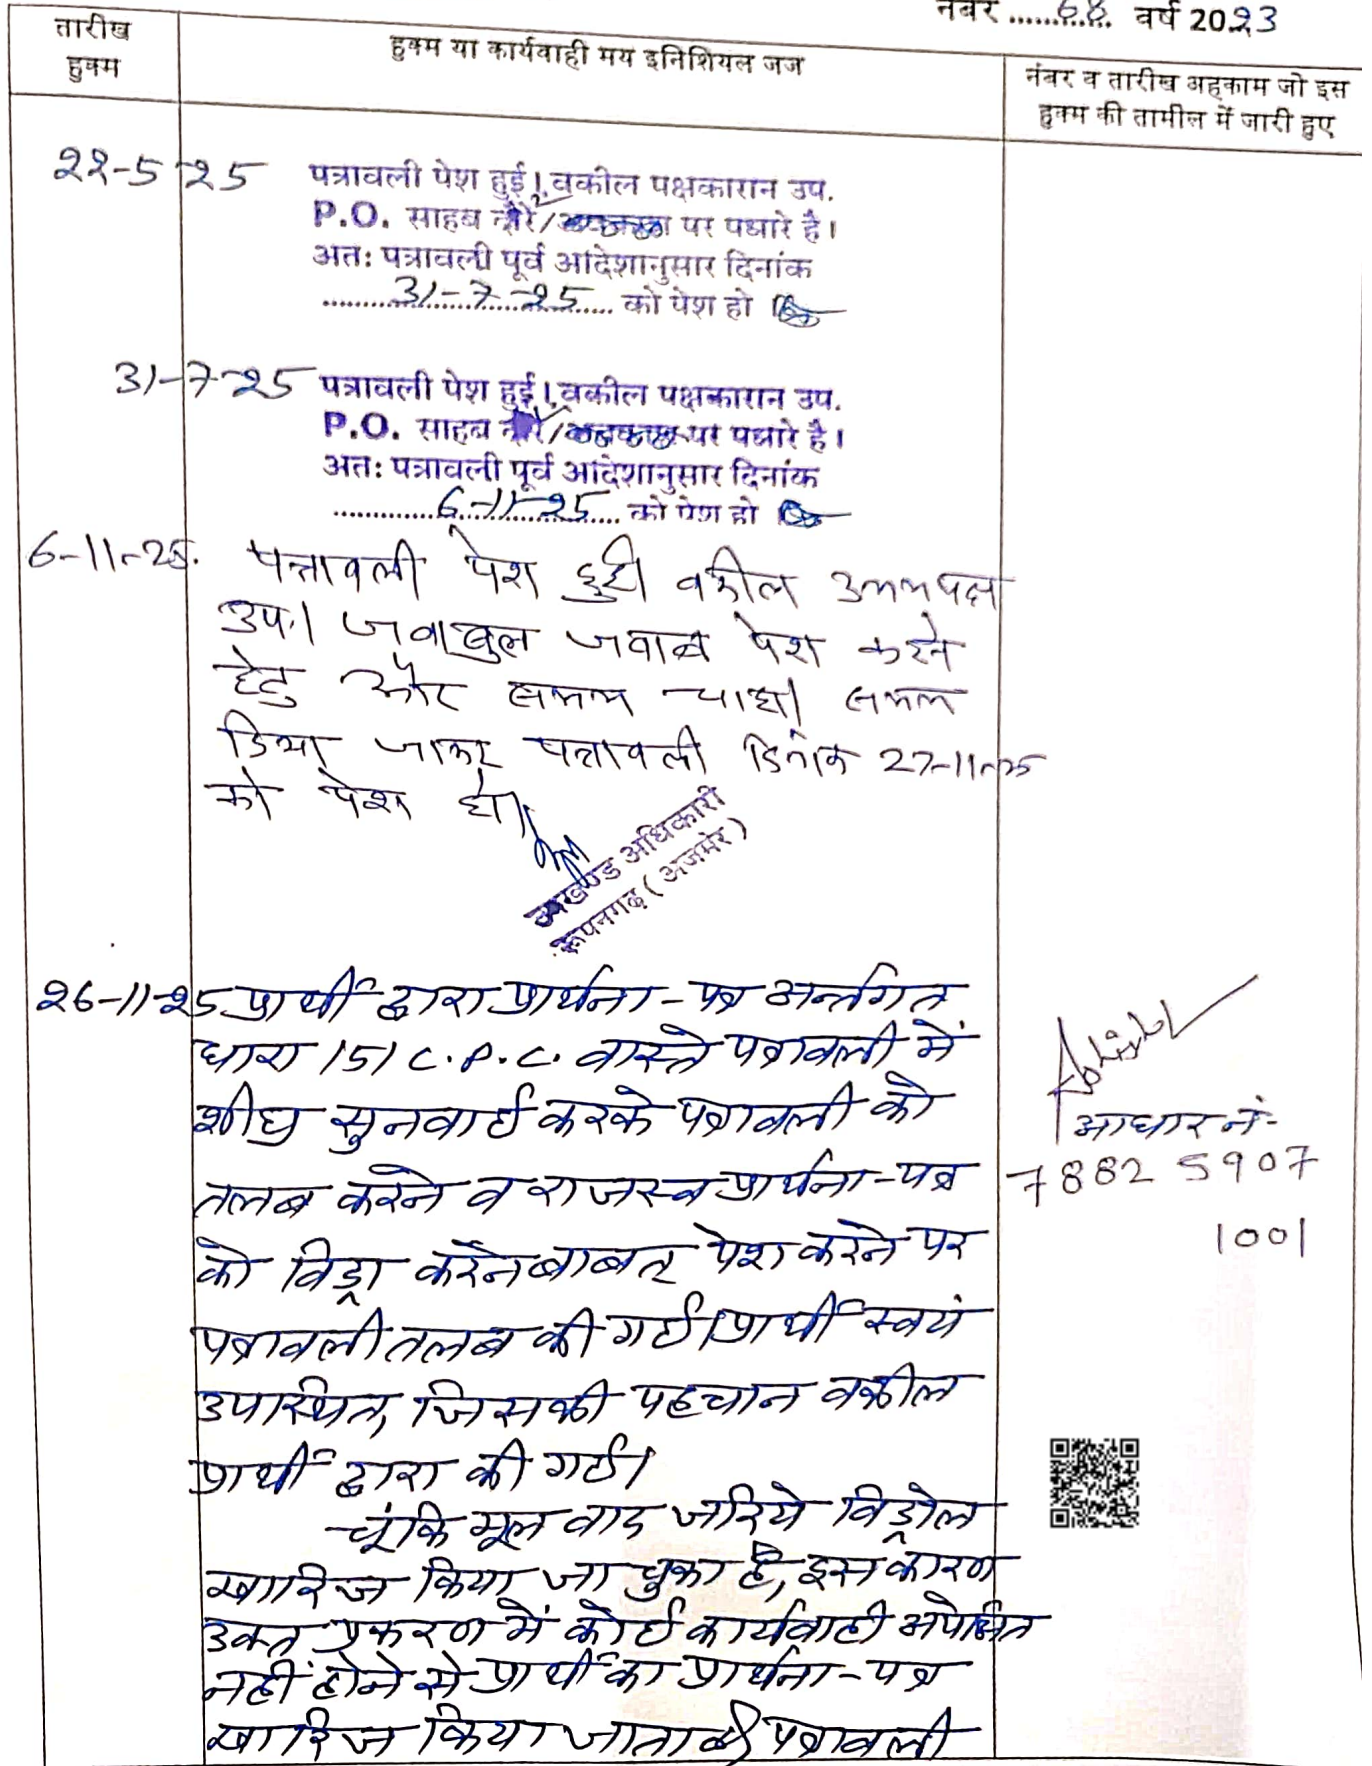 नंबर ............ वर्ष 2023
तारीख
हुक्म
हुक्म या कार्यवाही मय इनिशियल जज
नंबर व तारीख अहकाम जो इस
हुक्म की तामील में जारी हुए
22-5-25 पत्रावली पेश हुई। वकील पक्षकारान उप.
P.O. साहब दौरे/ पर पधारे है।
अतः पत्रावली पूर्व आदेशानुसार दिनांक
31-7-25 को पेश हो
31-7-25 पत्रावली पेश हुई। वकील पक्षकारान उप.
P.O. साहब दौरे/ पर पधारे है।
अतः पत्रावली पूर्व आदेशानुसार दिनांक
6-11-25 को पेश हो
6-11-25. पत्रावली पेश हुई। वकील उभयपक्ष
उप.। जवाबुल जवाब पेश करने
हेतु और समय चाहा। समय
दिया जाकर पत्रावली दिनांक 27-11-25
को पेश हो।
उपखण्ड अधिकारी
रूपनगढ़ (अजमेर)
26-11-25 प्रार्थी द्वारा प्रार्थना-पत्र अर्न्तगत
धारा 151 C.P.C. वास्ते पत्रावली में
शीघ्र सुनवाई करके पत्रावली को
तलब करने व राजस्व प्रार्थना-पत्र
को विड्रा करने बाबत् पेश करने पर
पत्रावली तलब की गई। प्रार्थी स्वयं
उपस्थित, जिसकी पहचान वकील
प्रार्थी द्वारा की गई।
चूंकि मूल वाद जरिये विड्रोल
खारिज किया जा चुका है, इस कारण
उक्त प्रकरण में कोई कार्यवाही अपेक्षित
नहीं होने से प्रार्थी का प्रार्थना-पत्र
खारिज किया जाता है। पत्रावली
आधार नं-
7882 5907
1001